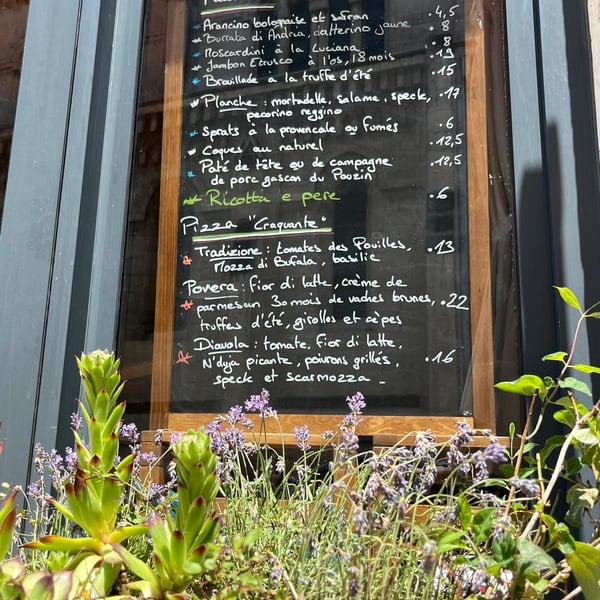 Arancino bolognaise et safran .4,5
Burrata di Andria, datterino jaune .8
Moscardini à la Luciana .8
Jambon Etrusco à l'os, 18 mois .19
Brouillade à la truffe d'été .15
Planche : mortadelle, salame, speck, .17
pecorino reggino
Sprats à la provençale ou fumés .6
Coques au naturel .12,5
Paté de tête ou de campagne .12,5
de porc gascon du Pouzin
Ricotta e pere .6
Pizza "Craquante"
Tradizione : tomates des Pouilles, .13
Mozza di Bufala, basilic
Povera : fior di latte, crème de
parmesan 30 mois de vaches brunes, .22
truffes d'été, girolles et cèpes
Diavola : tomate, fior di latte,
N'duja picante, poivrons grillés, .16
speck et scarmozza -